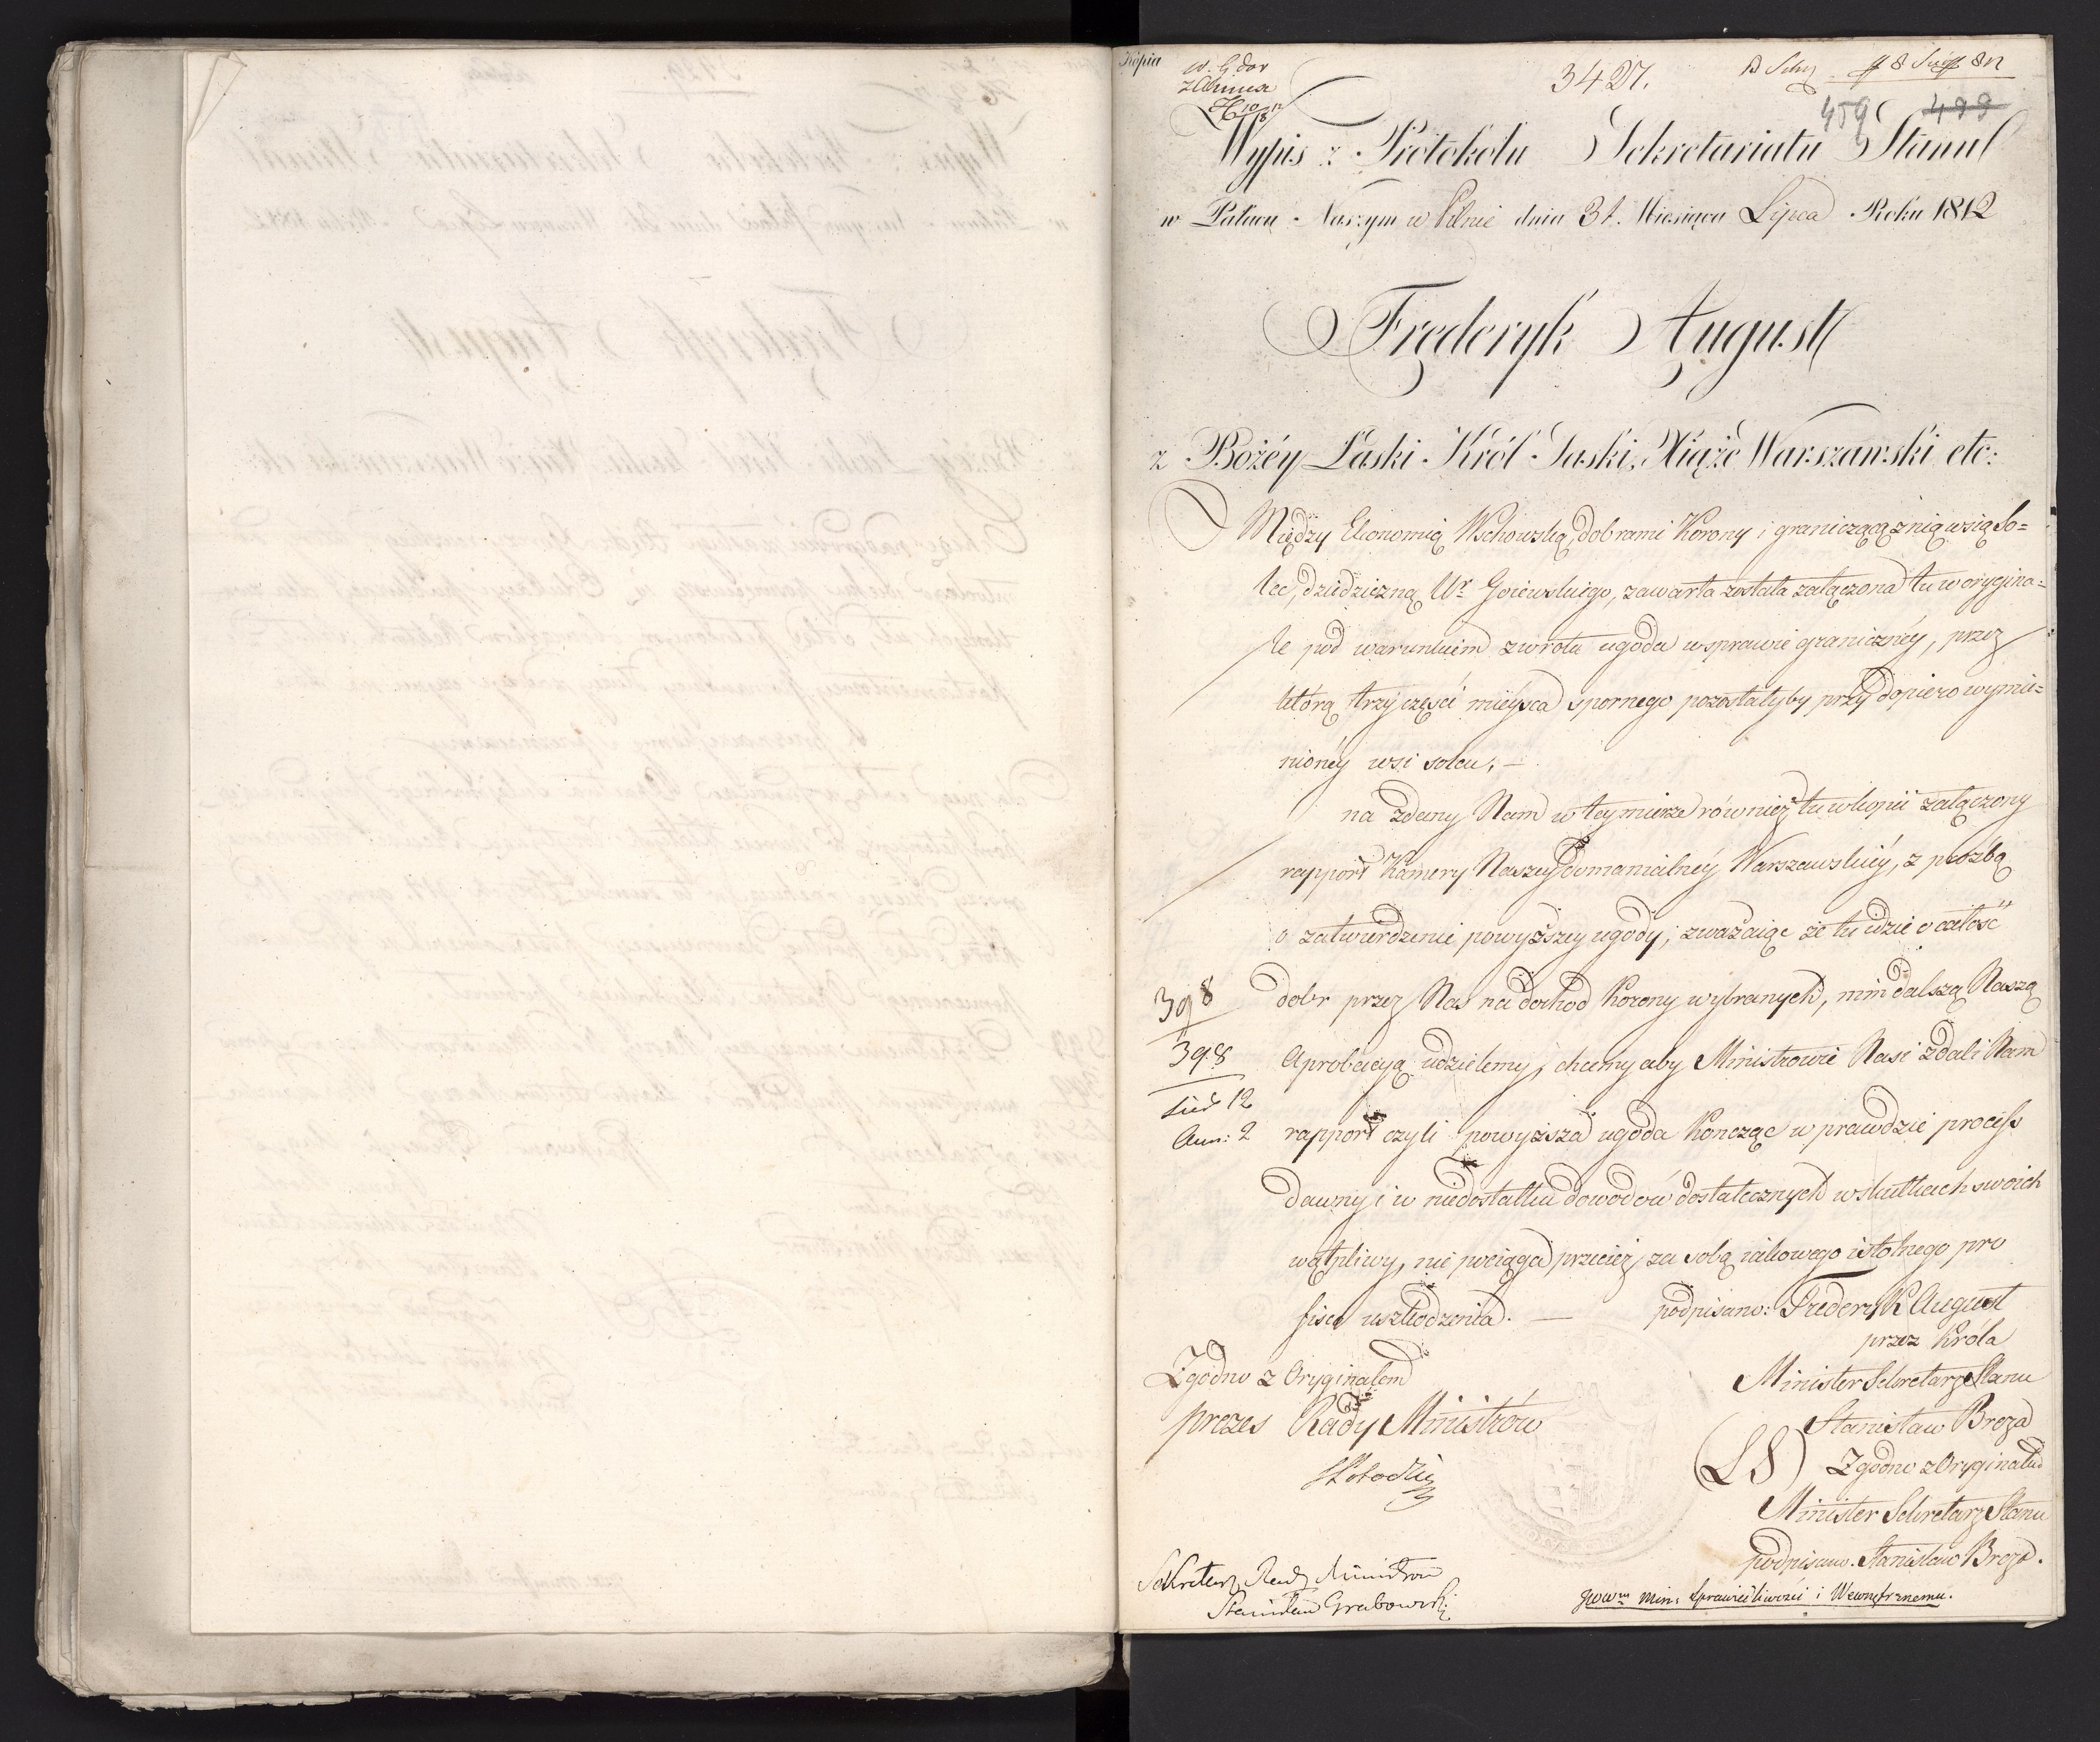 Kopia
3427.
459 499
Wypis z Protokołu Sekretariatu Stanu
w Pałacu Naszym w Pilnie dnia 31. Miesiąca Lipca Roku 1812
Frederyk August
z Bożéy Łaski Król Saski, Xiąże Warszawski etc:
Między Ekonomią Wschowską, dobrami Korony i graniczącą z nią wsią So=
lec, dziedziczną Ur. Goiewskiego, zawarta została załączona tu w orygina=
le pod warunkiem zwrotu ugoda w sprawie granicznéy, przez
którą trzy części mieysca spornego pozostałyby przy dopiero wymie=
nionéy wsi Solcu, —
na zdany Nam w tey mierze również tu w kopii załączony
rapport Kamery Naszey domanialnéy Warszawskiéy, z prozbą
o zatwierdzenie powyższey ugody; zważaiąc że tu idzie o całość
398 dobr przez Nas na dochod Korony wybranych, nim dalszą Naszą
398 Aprobacyą udzielemy, chcemy aby Ministrowie Nasi zdali Nam
12
2 rapport czyli powyższa ugoda kończąc w prawdzie process
dawny i w niedostatku dowodów dostatecznych w skutkach swoich
wątpliwy, nie pociąga przecież za sobą iakowego istotnego pro
fisco uszkodzenia. — podpisano: Frederyk August
przez Króla
Zgodno z Oryginałem
Minister Sekretarz Stanu
prezes Rady Ministrów
Stanisław Breza
(LS) Zgodno z Oryginałem
Minister Sekretarz Stanu
podpisano. Stanisław Breza.
Sekretarz Rady Ministrow
Stanisław Grabowski
Min: Sprawiedliwości i Wewnętrznemu.